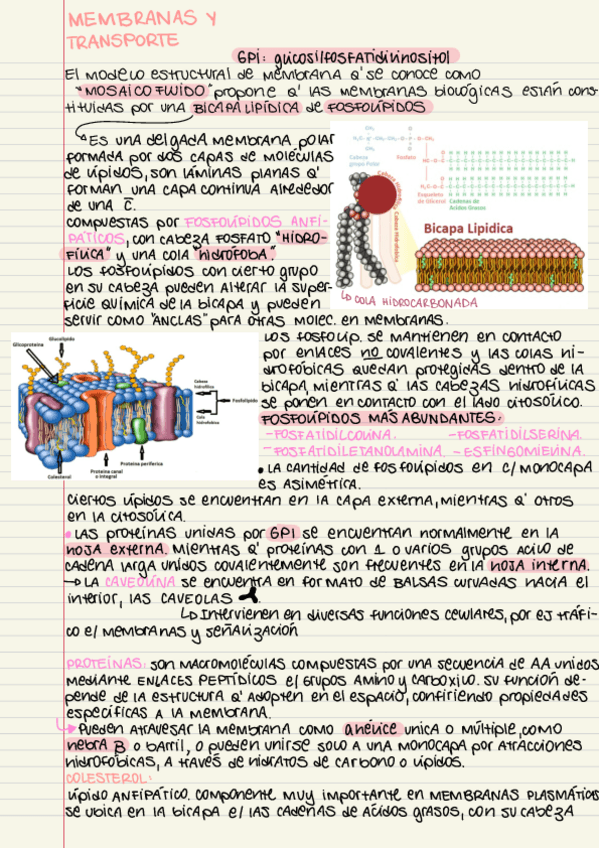 MEMBRANAS Y
TRANSPORTE
GPI: glicosilfosfatidilinositol
El modelo estructural de membrana q' se conoce como
"MOSAICO FLUIDO" propone q' las membranas biológicas están cons-
tituidas por una BICAPA LIPÍDICA de FOSFOLÍPIDOS
Es una delgada membrana polar
formada por dos capas de moléculas
de lípidos, son láminas planas q'
forman una capa continua alrededor
de una c̄.
compuestas por FOSFOLÍPIDOS ANFI-
PÁTICOS, con cabeza fosfato "HIDRO-
FÍLICA" y una cola "hidrófoba".
Los fosfolípidos con cierto grupo
en su cabeza pueden alterar la super-
ficie química de la bicapa y pueden
servir como "ANCLAS" para otras molec. en membranas.
Cabeza
grupo Polar
Fosfato
Esqueleto
de Glicerol
Cadenas de
Ácidos Grasos
Bicapa Lipidica
COLA HIDROCARBONADA
Los fosfolíp. se mantienen en contacto
por enlaces no covalentes y las colas hi-
drofóbicas quedan protegidas dentro de la
bicapa, mientras q' las cabezas hidrofílicas
se ponen en contacto con el lado citosólico.
Glicoproteína
Glucolípido
Cabeza
hidrofílica
Fosfolípido
Cola
hidrofóbica
Proteína periferica
Proteína canal
o integral
Colesterol
FOSFOLÍPIDOS MÁS ABUNDANTES:
-FOSFATIDILCOLINA. -FOSFATIDILSERINA.
-FOSFATIDILETANOLAMINA. -ESFINGOMIELINA.
• La cantidad de fosfolípidos en c/ monocapa
es asimétrica.
Ciertos lípidos se encuentran en la capa externa, mientras q' otros
en la citosólica.
• Las proteínas unidas por GPI se encuentran normalmente en la
hoja externa. Mientras q' proteínas con 1 o varios grupos acilo de
cadena larga unidos covalentemente son frecuentes en la hoja interna.
→ La CAVEOLINA se encuentra en formato de balsas curvadas hacia el
interior, las CAVEOLAS
Intervienen en diversas funciones celulares, por ej tráfi-
co e/ membranas y señalización
PROTEÍNAS: son macromoléculas compuestas por una secuencia de AA unidos
mediante ENLACES PEPTÍDICOS e/ grupos Amino y carboxilo. Su función de-
pende de la estructura q' adopten en el espacio, confiriendo propiedades
específicas a la membrana.
→ Pueden atravesar la membrana como αhélice unica o múltiple, como
hebra β o barril, o pueden unirse solo a una monocapa por atracciones
hidrofóbicas, a través de hidratos de carbono o lípidos.
COLESTEROL:
Lípido ANFIPÁTICO. componente muy importante en MEMBRANAS PLASMÁTICAS
se ubica en la bicapa e/ las cadenas de ácidos grasos, con su cabeza